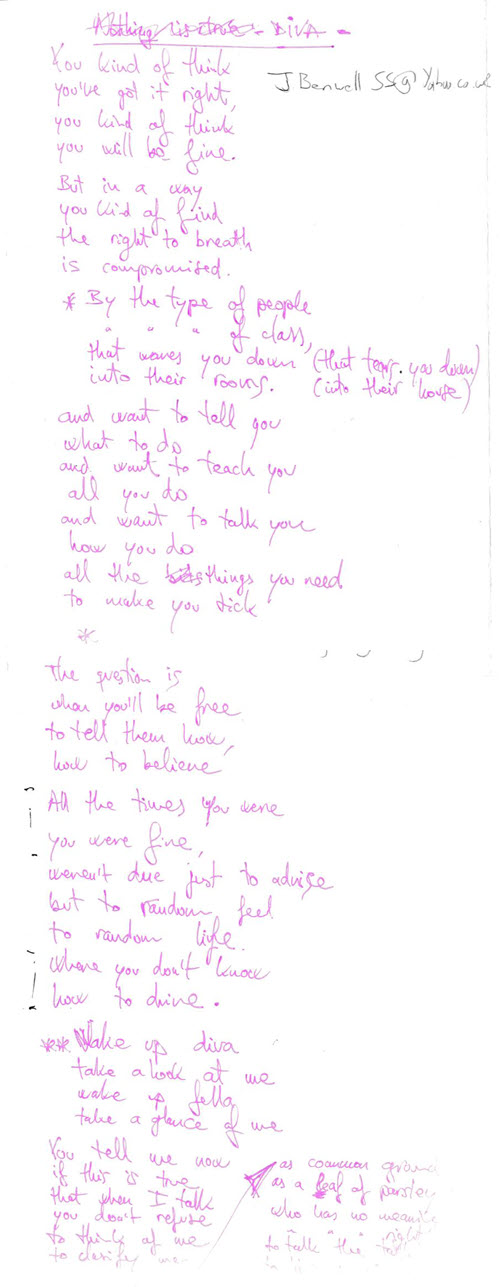 Nothing is true - DIVA -
J Benwell 55@Yahoo.co.uk
You kind of think
you've got it right,
you kind of think
you will be fine.
But in a way
you kind of find
the right to breath
is compromised.
* By the type of people
" " " of class,
that waves you down (that tears you down)
into their rooms. (into their house)
and want to tell you
what to do
and want to teach you
all you do
and want to talk you
how you do
all the things you need
to make you tick
*
The question is
when you'll be free
to tell them how,
how to believe
All the times you were
you were fine,
weren't due just to advise
but to random feel
to random life.
Where you don't know
how to drive.
** Wake up diva
take a look at me
wake up fella
take a glance of me
You tell me now
if this is true
that when I talk
you don't refuse
to think of me
to classify me
as common
as a leaf of parsley
who has no
to talk "the"